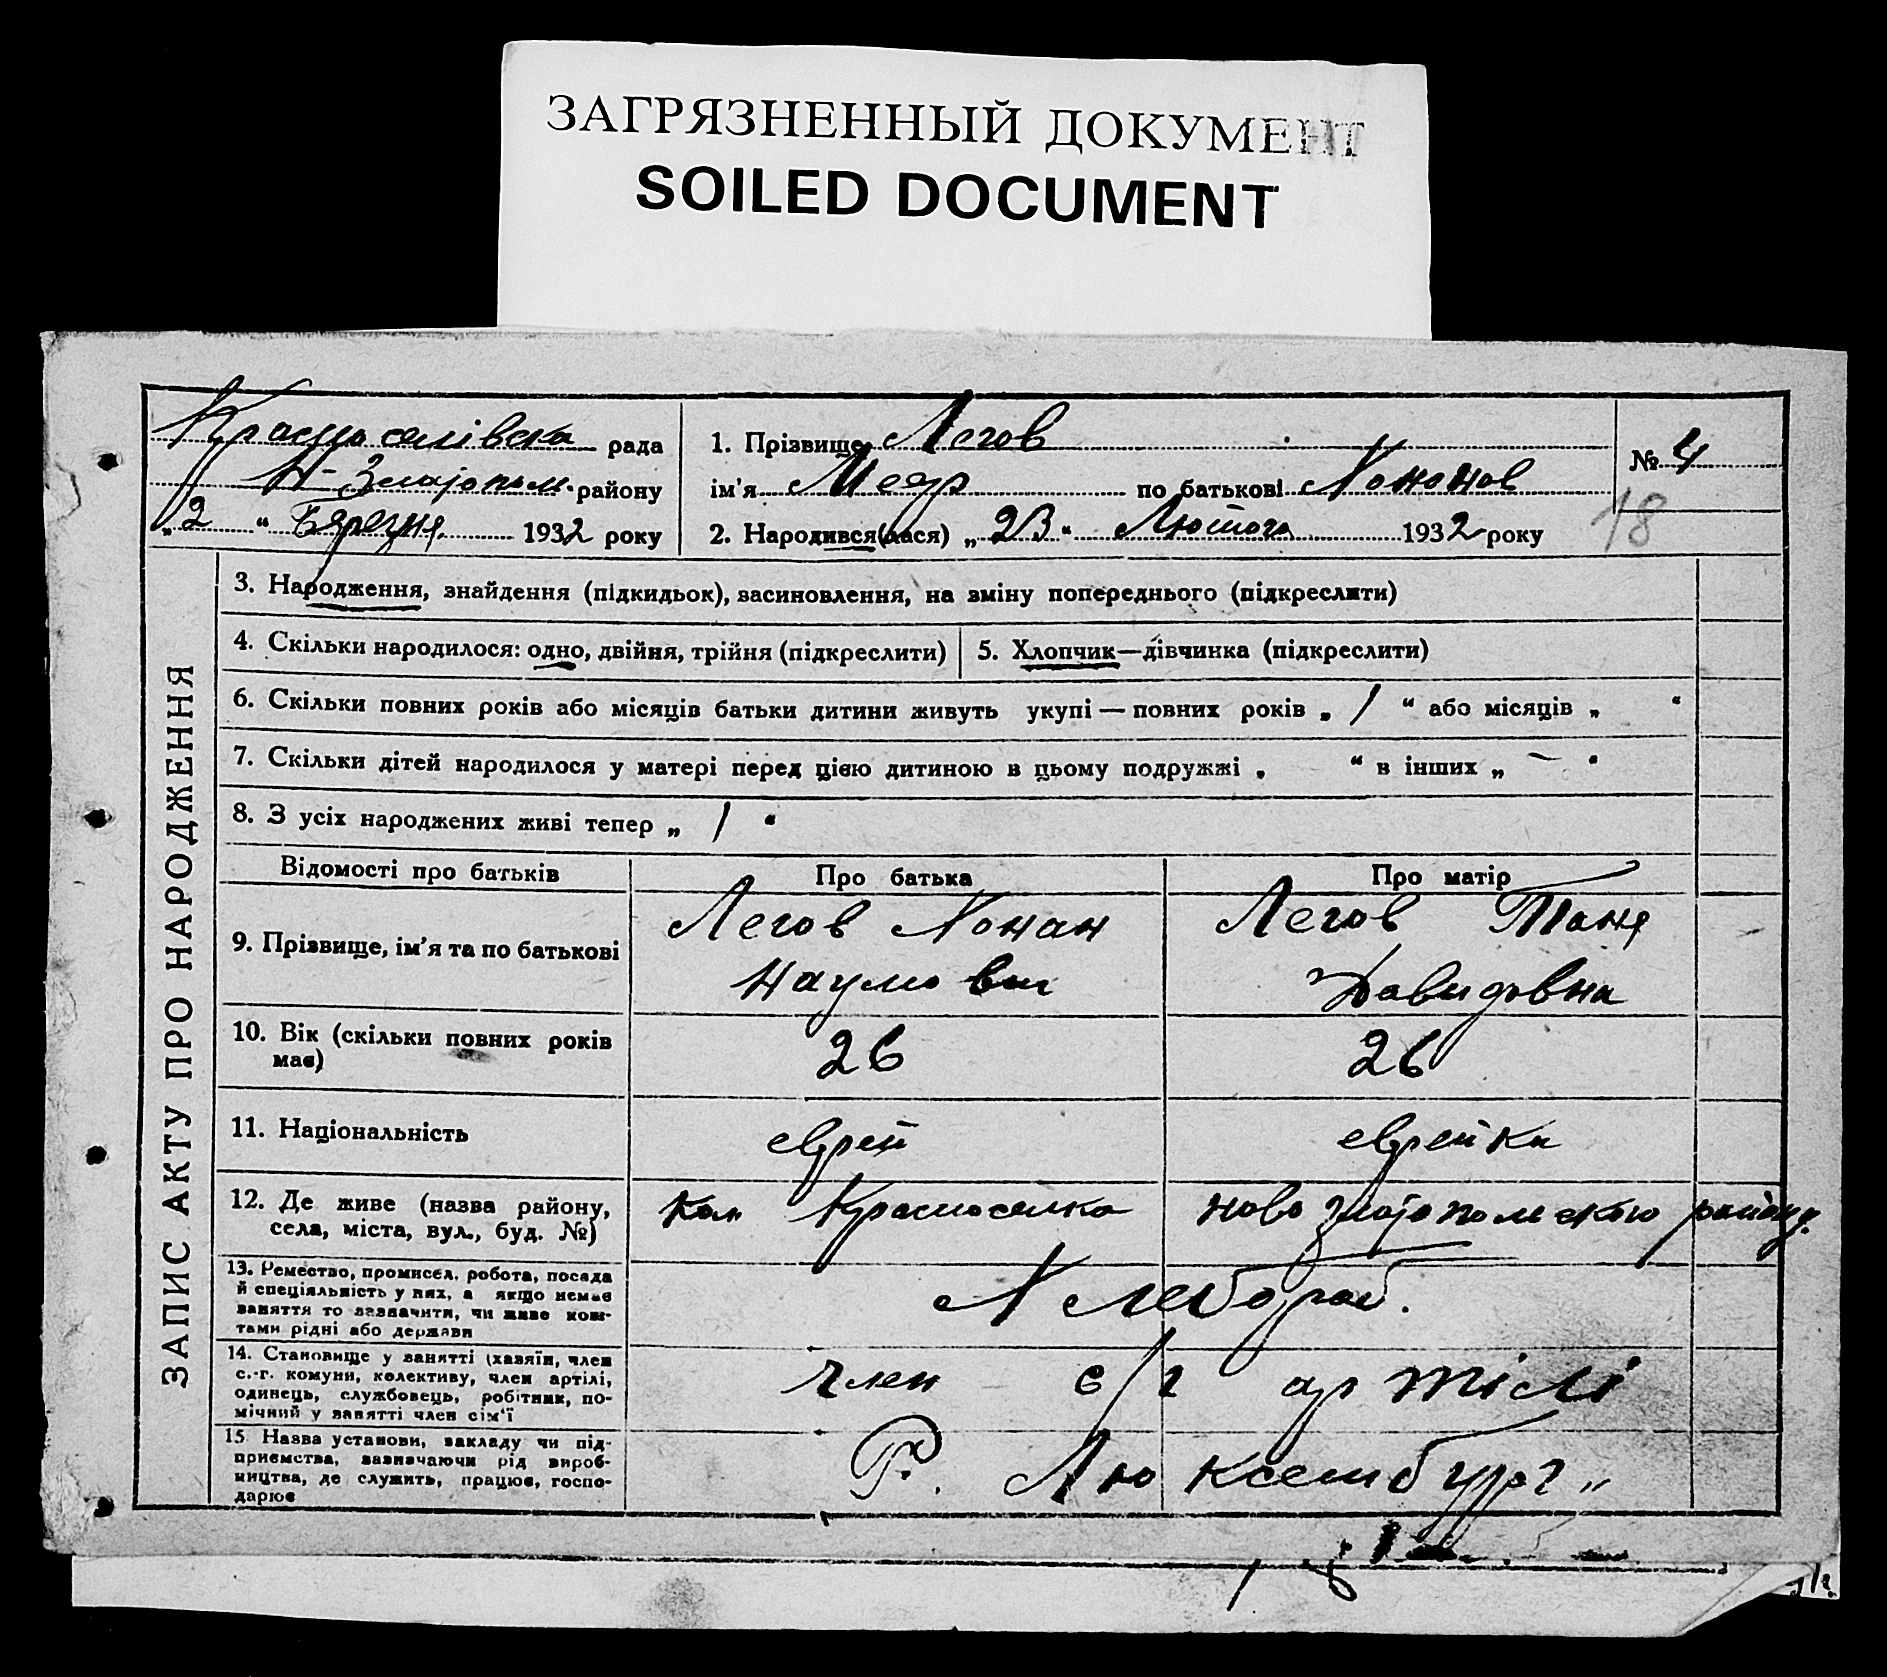 ЗАГРЯЗНЕННЫЙ ДОКУМЕНТ
SOILED DOCUMENT
Красноселівска рада
Н-Златопол. району
„2“ Березня 1932 року
1. Прізвище Легов
ім'я Меер по батькові Хононов
2. Народився(лася) „23“ Лютого 1932 року
№ 4
18
ЗАПИС АКТУ ПРО НАРОДЖЕННЯ
3. Народження, знайдення (підкидьок), засиновлення, на зміну попереднього (підкреслити)
4. Скільки народилося: одно, двійня, трійня (підкреслити)
5. Хлопчик—дівчинка (підкреслити)
6. Скільки повних років або місяців батьки дитини живуть укупі — повних років „ 1 “ або місяців „ “
7. Скільки дітей народилося у матері перед цією дитиною в цьому подружжі „ “ в інших „ — “
8. З усіх народжених живі тепер „ 1 “
Відомості про батьків
Про батька
Про матір
9. Прізвище, ім'я та по батькові
Легов Хонан
Наумович
Легов Таня
Давидовна
10. Вік (скільки повних років
має)
26
26
11. Національність
еврей
еврейка
12. Де живе (назва району,
села, міста, вул., буд. №)
кол Красноселка ново златопольского району
13. Ремество, промисел, робота, посада
й спеціяльність у них, а якщо немає
заняття то зазначити, чи живе кош-
тами рідні або держави
Хлебороб.
14. Становище у занятті (хазяїн, член
с.-г. комуни, колективу, член артілі,
одинець, службовець, робітник, по-
мічний у занятті член сім'ї
член с/г артілі
15. Назва установи, закладу чи під-
приємства, зазначаючи рід вироб-
ництва, де служить, працює, госпо-
дарює
Р. Люксембург"